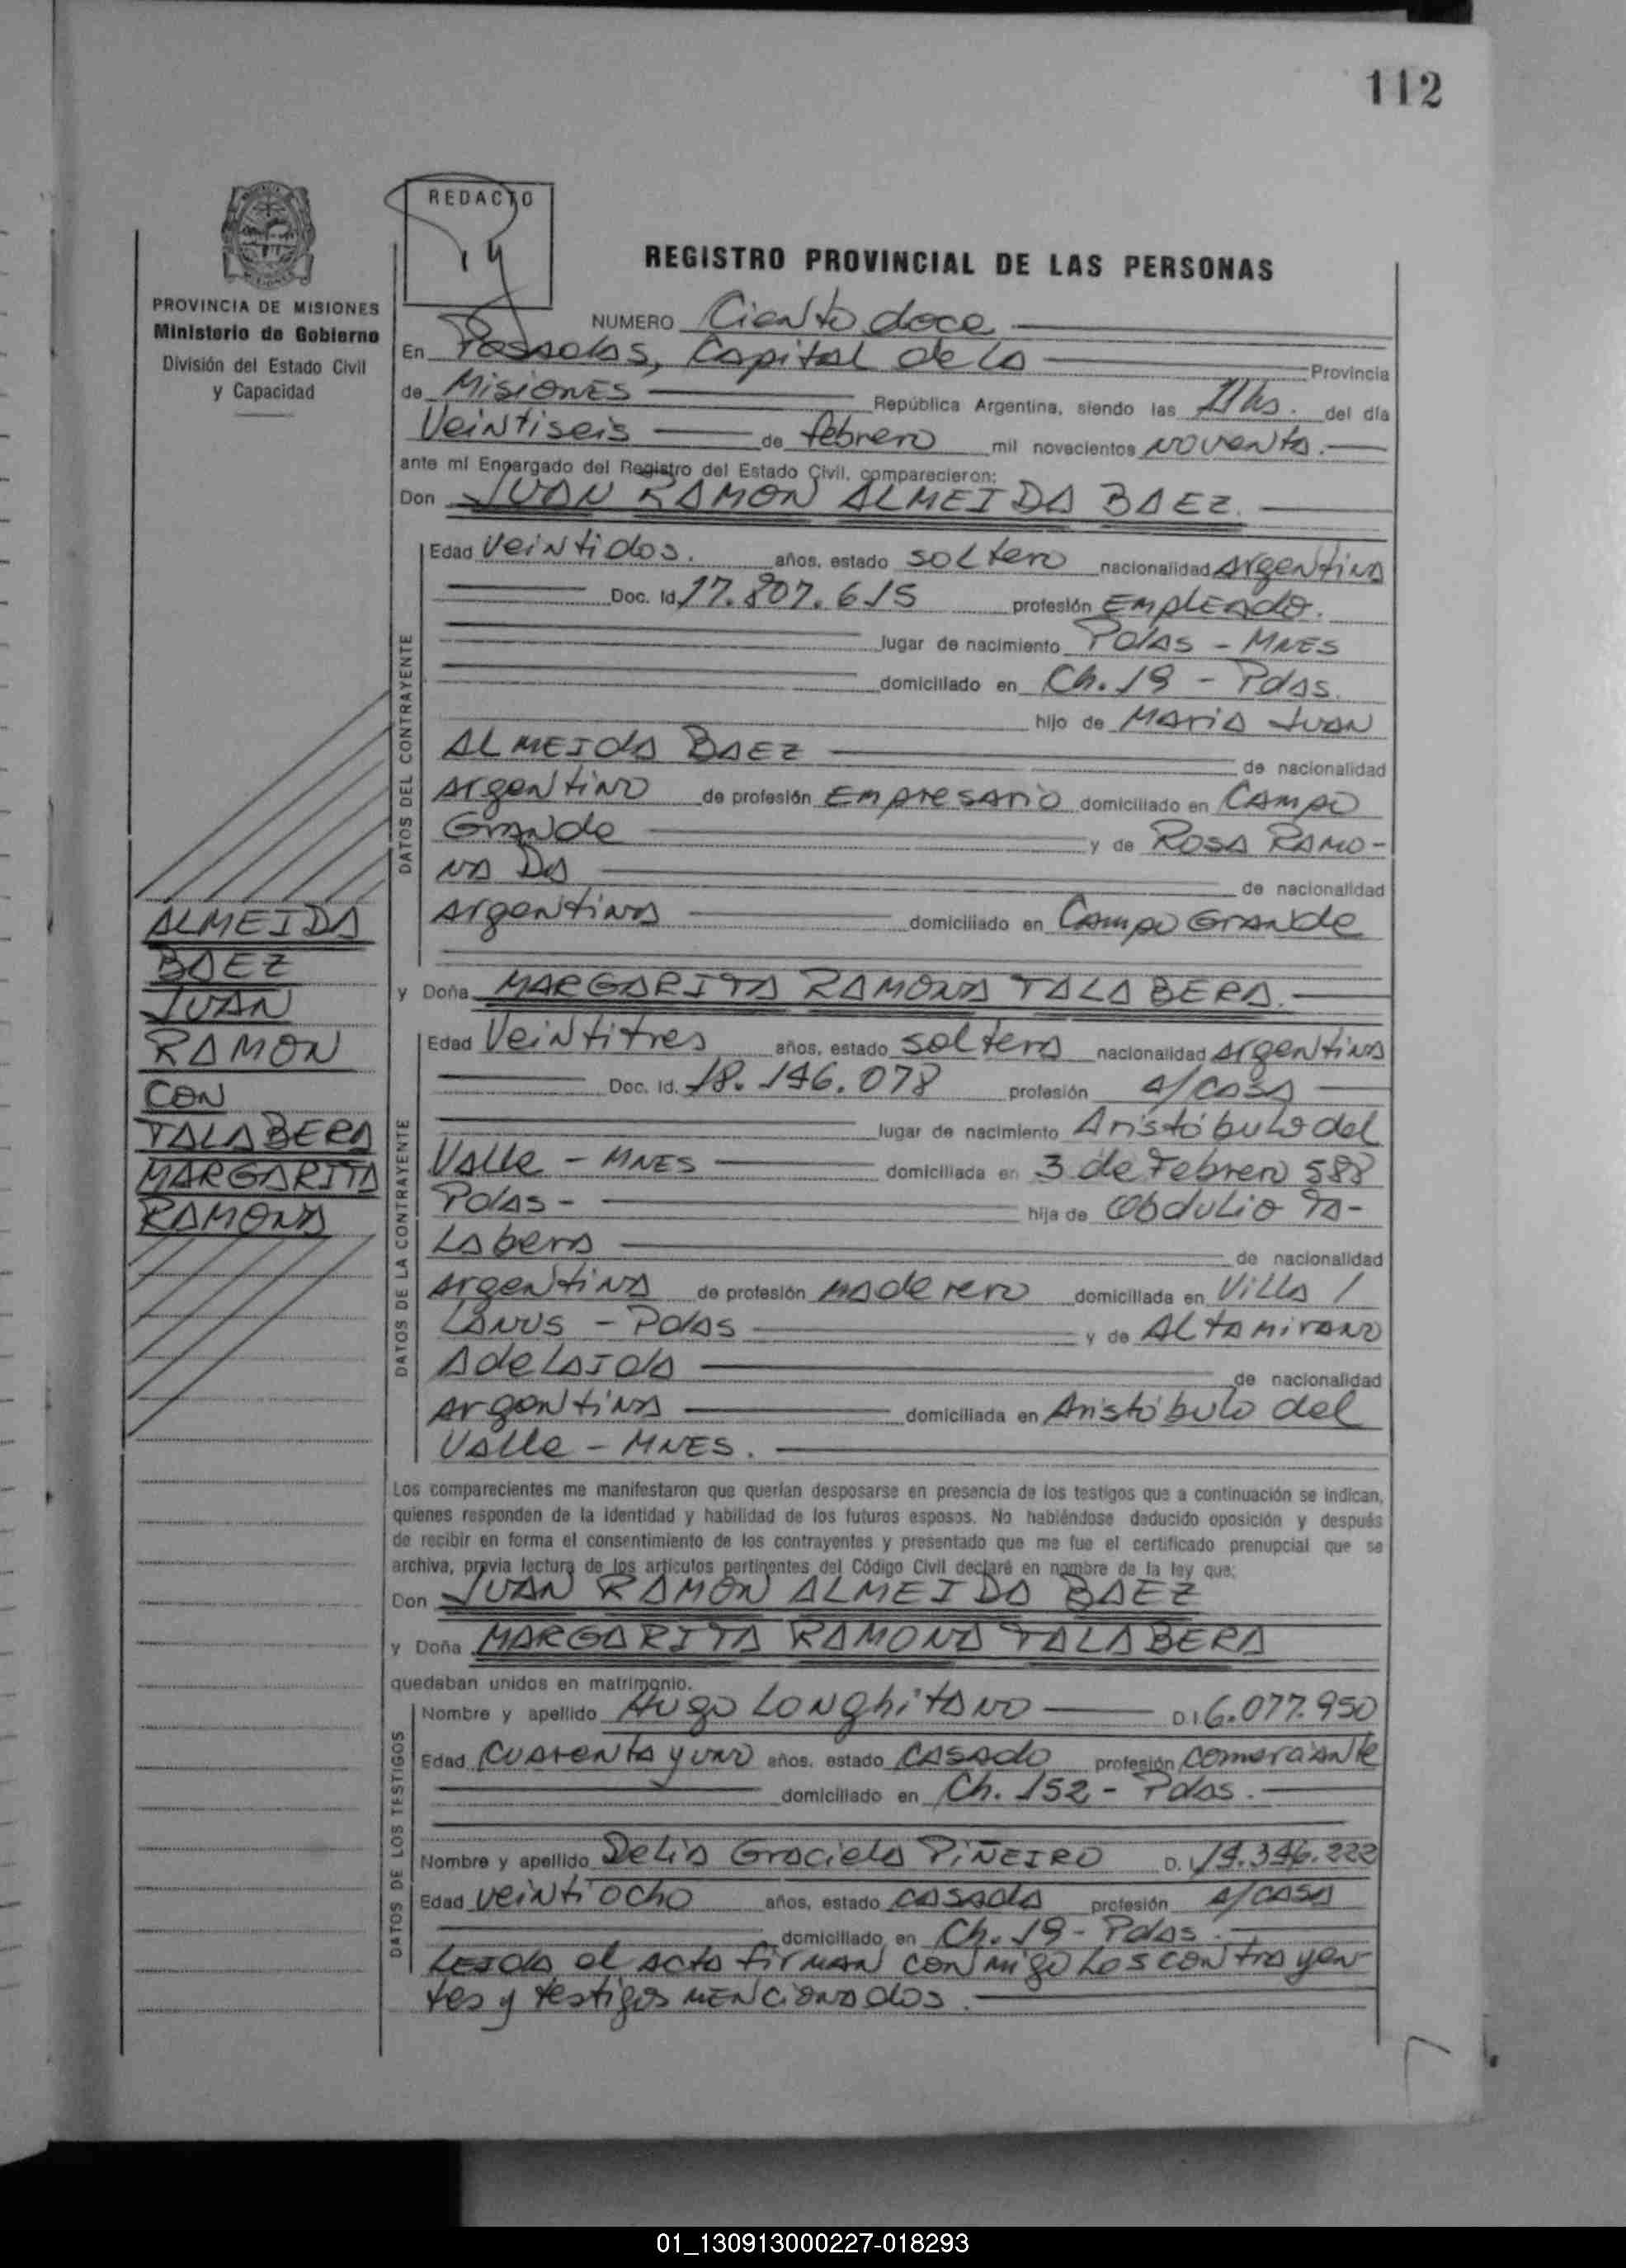 112
REDACTO
14
REGISTRO PROVINCIAL DE LAS PERSONAS
PROVINCIA DE MISIONES
Ministerio de Gobierno
División del Estado Civil
y Capacidad
NUMERO Ciento doce
En Posadas, Capital de la Provincia
de MISIONES República Argentina, siendo las 11 hs. del día
Veintiseis de febrero mil novecientos NOVENTA.
ante mí Encargado del Registro del Estado Civil, comparecieron:
Don JUAN RAMON ALMEIDA BAEZ.
Edad Veintidos. años, estado soltero nacionalidad Argentina
Doc. Id. 17.807.615 profesión Empleado.
lugar de nacimiento Pdas - MNES
domiciliado en Ch. 19 - Pdas.
hijo de Maria Juan
ALMEIDA BAEZ de nacionalidad
Argentino de profesión Empresario domiciliado en CAMPO
Grande y de ROSA RAMO-
NA DA de nacionalidad
Argentina domiciliado en Campo Grande
y Doña MARGARITA RAMONA TALABERA.
Edad Veintitres años, estado soltera nacionalidad Argentina
Doc. Id. 18.146.078 profesión a/casa
lugar de nacimiento Aristóbulo del
Valle - MNES domiciliada en 3 de Febrero 588
Pdas - hija de Obdulio Ta-
labera de nacionalidad
Argentina de profesión maderero domiciliada en Villa
Lanus - Pdas y de Altamirano
Adelaida de nacionalidad
Argentina domiciliada en Aristóbulo del
Valle - MNES.
DATOS DEL CONTRAYENTE
DATOS DE LA CONTRAYENTE
ALMEIDA
BAEZ
JUAN
RAMON
CON
TALABERA
MARGARITA
RAMONA
Los comparecientes me manifestaron que querían desposarse en presencia de los testigos que a continuación se indican,
quienes responden de la identidad y habilidad de los futuros esposos. No habiéndose deducido oposición y después
de recibir en forma el consentimiento de los contrayentes y presentado que me fue el certificado prenupcial que se
archiva, previa lectura de los artículos pertinentes del Código Civil declaré en nombre de la ley que:
Don JUAN RAMON ALMEIDA BAEZ
y Doña MARGARITA RAMONA TALABERA
quedaban unidos en matrimonio.
Nombre y apellido Hugo Longhitano D.I. 6.077.950
Edad cuarenta y uno años, estado casado profesión comerciante
domiciliado en Ch. 152 - Pdas.
Nombre y apellido Delia Graciela PIÑEIRO D.I. 14.346.222
Edad veintiocho años, estado casada profesión a/casa
domiciliado en Ch. 19 - Pdas.
DATOS DE LOS TESTIGOS
Leida el acta firman conmigo los contrayen
tes y testigos mencionados.
01_130913000227-018293